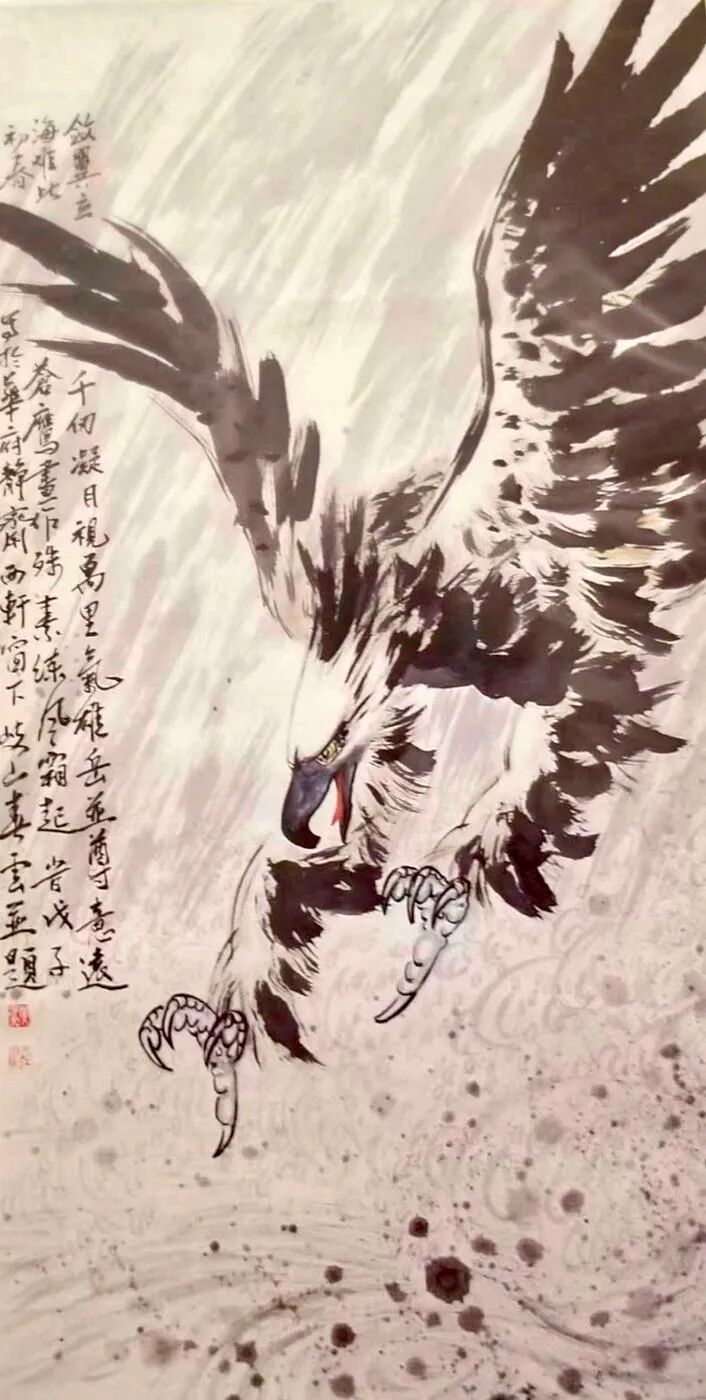 斂翼立
千仞凝目視萬里氣雄岳並尊意遠
海難比
蒼鷹畫作殊素練風霜起旹戊子
初春
寫於華府靜齋西軒窗下岐山春雲並題